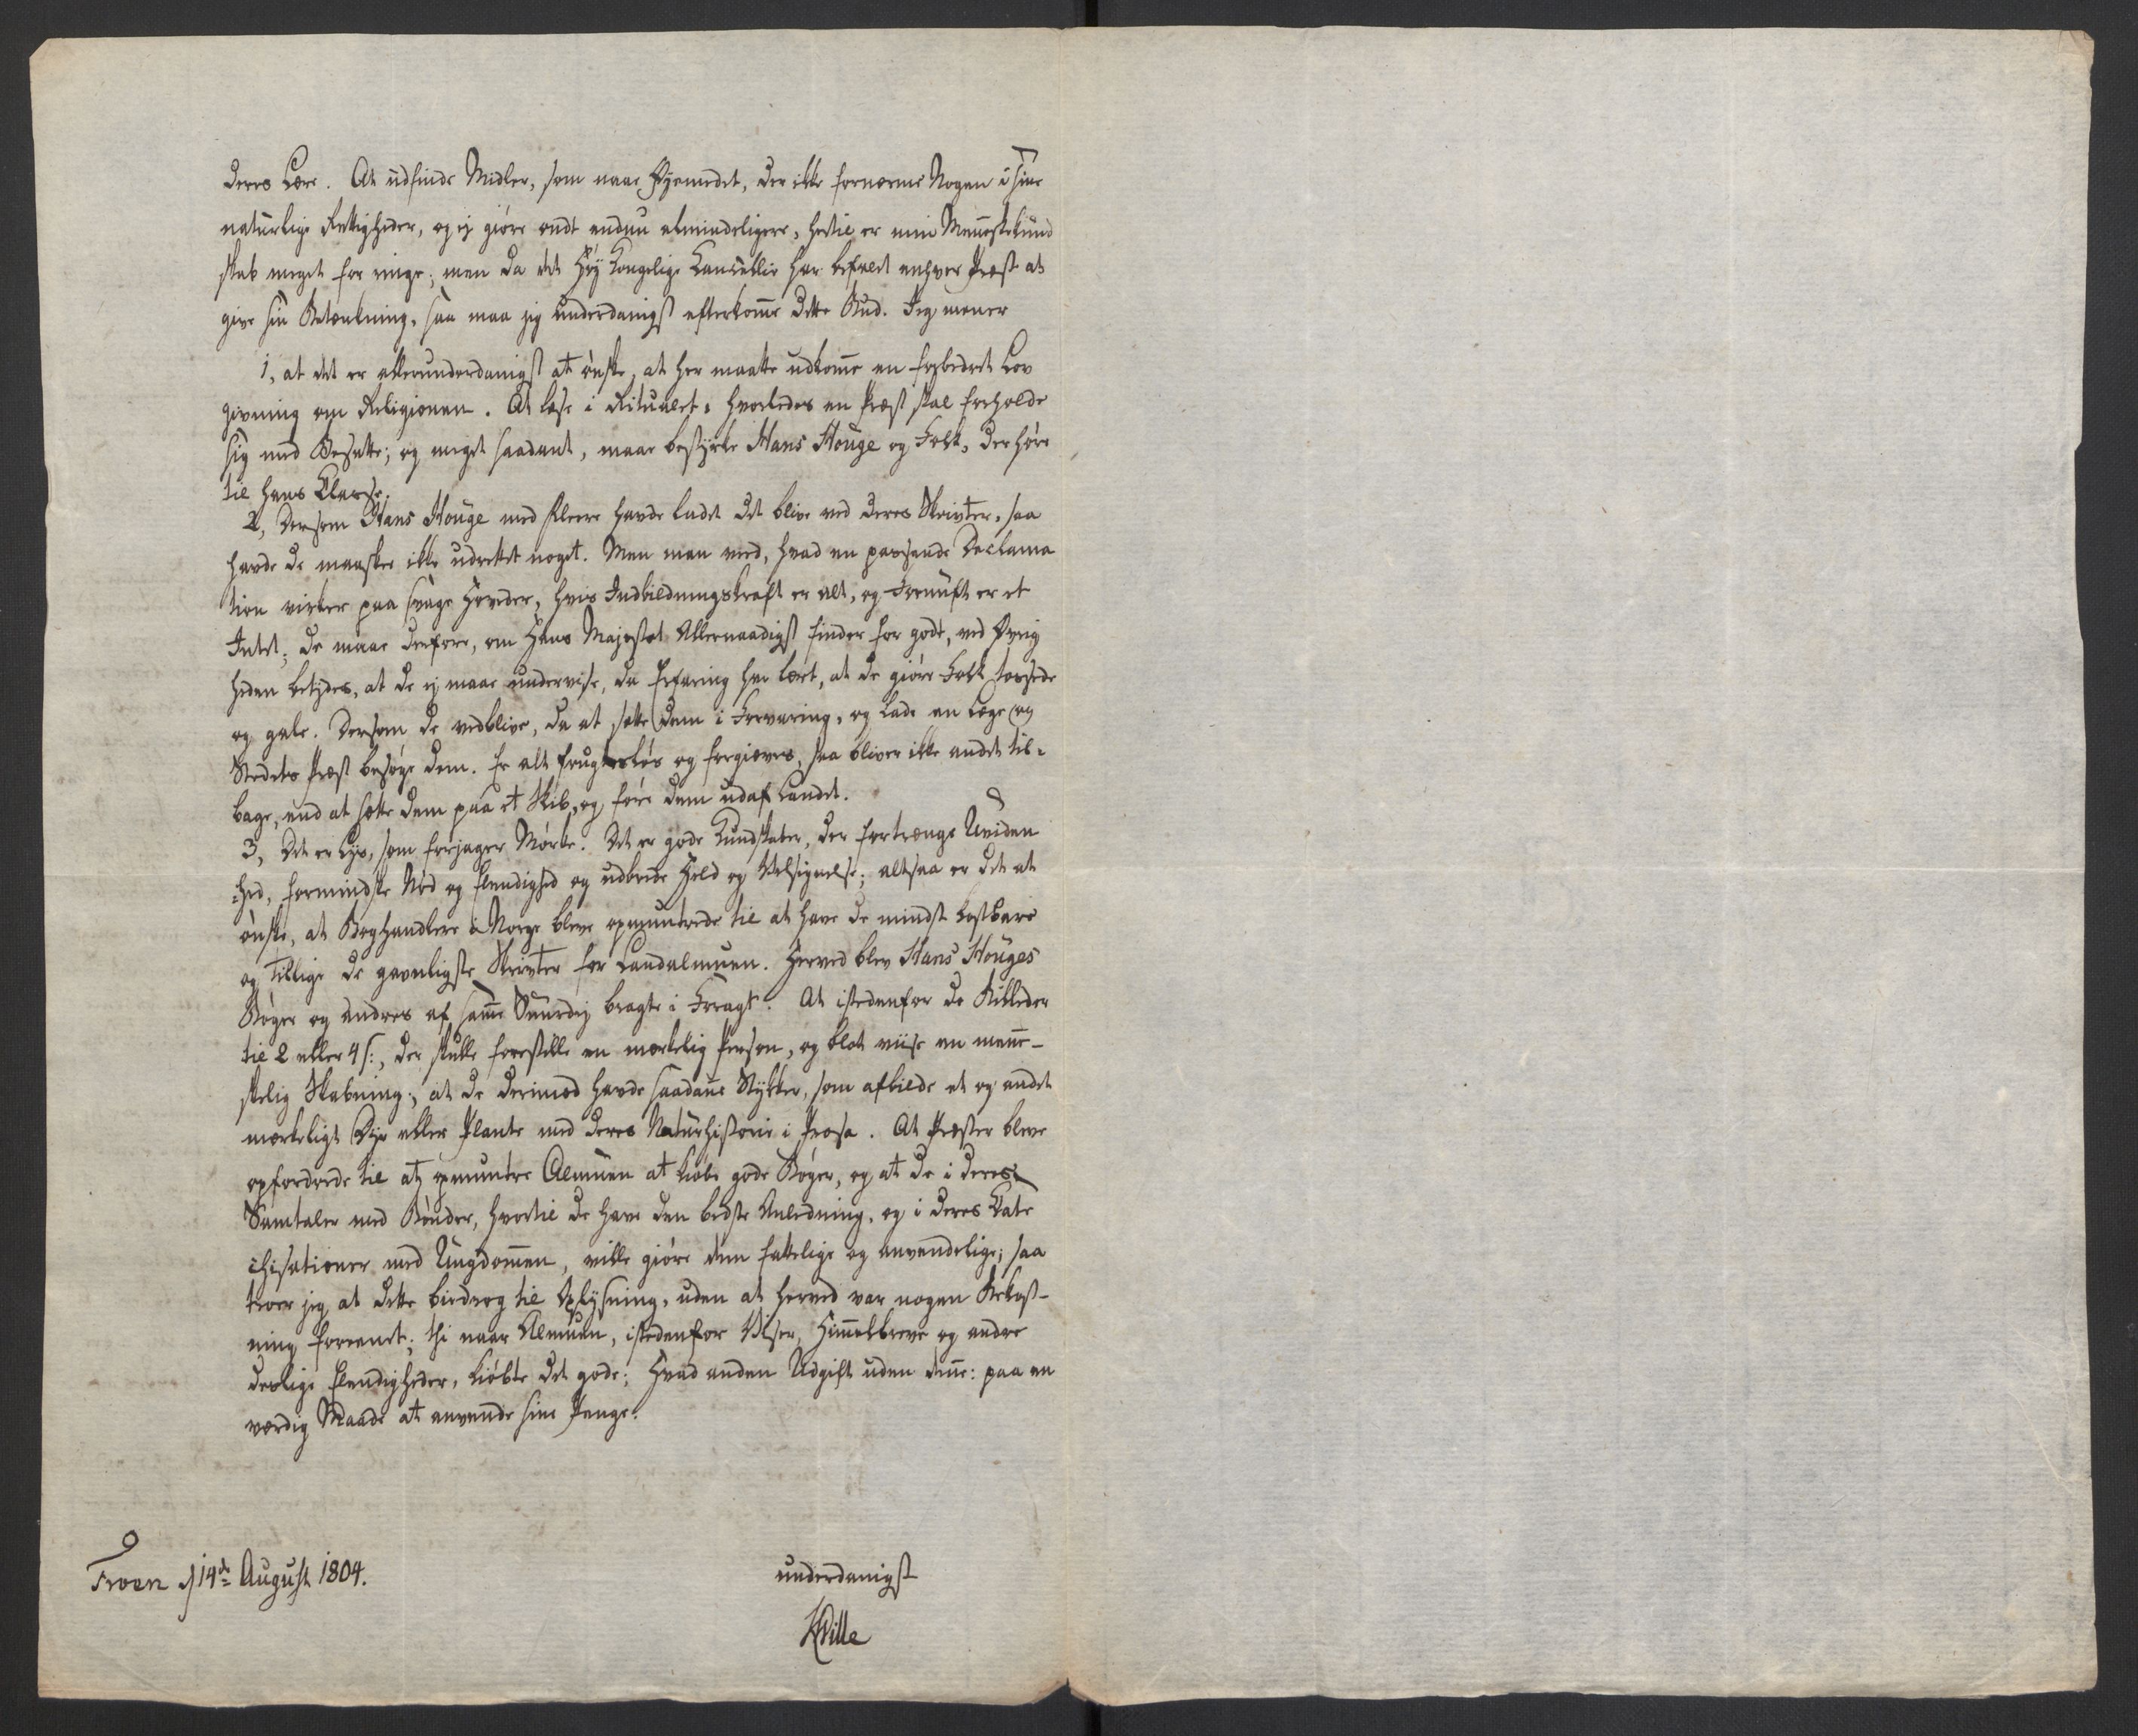 deres Lære. At udfinde Midler, som naae Øyemedet, der ikke fornærme Nogen i sine
naturlige Rettigheder, og ej giøre ondt endnu almindeligere, hertil er min Menneskekund
skab meget for ringe; men da det Høy Kongelige Cancellie har befalet enhver Præst at
give sin Betænkning, saa maa jeg underdanigst efterkomme dette Bud. Jeg mener
1, at det er allerunderdanigst at ønske, at her maatte udkomme en forbedret Lov
givning om Religionen. At læse i Ritualet, hvorledes en Præst skal forholde
sig med Besatte; og meget saadant, maae bestyrke Hans Houge og Folk, der høre
til hans Classe.
2, Dersom Hans Houge med fleere havde ladet det blive ved deres Skrivter, saa
havde de maaskee ikke udrettet noget. Men man veed, hvad en passende Declama
tion virker paa svage Hoveder, hvis Indbildningskraft er alt, og Fornuft er et
Intet; de maae derfore, om Hans Majestæt Allernaadigst finder for godt, ved Øvrig
heden betydes, at de ej maae undervise, da Erfaring har lært, at de giøre Folk tossede
og gale. Dersom de vedblive, da at sætte dem i Forvaring, og lade en Læge og
Stedets Præst besøge dem. Er alt frugtesløs og forgieves, saa bliver ikke andet til-
bage, end at sætte dem paa et Skib, og føre dem udaf Landet.
3, Det er Lys, som forjager Mørke. Det er gode Kundskaber, der fortrænge Uviden
:hed, formindske Nød og Elendighed og udbrede Held og Velsignelse; altsaa er det at
ønske, at Boghandlere i Norge bleve opmuntrede til at have de mindst kostbare
og tillige de gavnligste Skrivter for Landalmuen. Herved blev Hans Houges
Bøger og andres af samme Suurdej bragte i Foragt. At istedenfor de Billeder
til 2 eller 4 s:, der skulle forestille en mærkelig Person, og blot viise en menne-
skelig Skabning, at de derimod havde saadanne Stykker, som afbilde et og andet
mærkeligt Dyr eller Plante med deres Naturhistorie i Prosa. At Præster bleve
opfordrede til at opmuntre Almuen at kiøbe gode Bøger, og at de i deres
Samtaler med Bønder, hvortil de have den bedste Anledning, og i deres Cate
chisationer med Ungdommen, ville giøre dem fattelige og anvendelige; saa
troer jeg at dette bidrog til Oplysning, uden at herved var nogen Bekost-
ning foreenet; thi naar Almuen, istedenfor Viser, Himmelbreve og andre
deslige Elendigheder, kiøbte det gode; Hvad anden Udgift uden denne: paa en
værdig Maade at anvende sine Penge.
Froen d 14de August 1804.
underdanigst
HWille